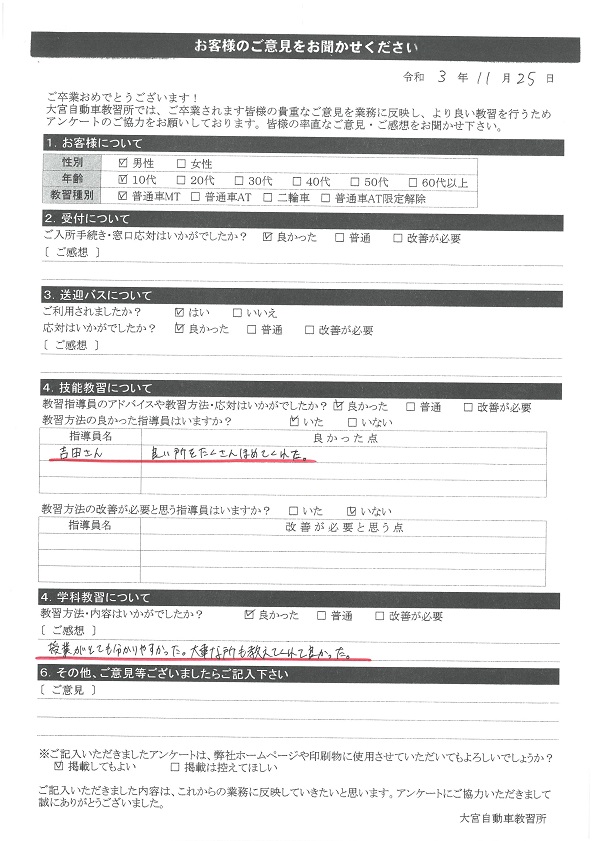 お客様のご意見をお聞かせください
令和 3 年 11 月 25 日
ご卒業おめでとうございます!
大宮自動車教習所では、ご卒業されます皆様の貴重なご意見を業務に反映し、より良い教習を行うため
アンケートのご協力をお願いしております。皆様の率直なご意見・ご感想をお聞かせ下さい。
1. お客様について
性別 ☑ 男性 □ 女性
年齢 ☑ 10代 □ 20代 □ 30代 □ 40代 □ 50代 □ 60代以上
教習種別 ☑ 普通車MT □ 普通車AT □ 二輪車 □ 普通車AT限定解除
2. 受付について
ご入所手続き・窓口応対はいかがでしたか? ☑ 良かった □ 普通 □ 改善が必要
[ ご感想 ]
3. 送迎バスについて
ご利用されましたか? ☑ はい □ いいえ
応対はいかがでしたか? ☑ 良かった □ 普通 □ 改善が必要
[ ご感想 ]
4. 技能教習について
教習指導員のアドバイスや教習方法・応対はいかがでしたか? ☑ 良かった □ 普通 □ 改善が必要
教習方法の良かった指導員はいますか? ☑ いた □ いない
指導員名 良かった点
吉田さん 良い所をたくさんほめてくれた。
教習方法の改善が必要と思う指導員はいますか? □ いた ☑ いない
指導員名 改善が必要と思う点
4. 学科教習について
教習方法・内容はいかがでしたか? ☑ 良かった □ 普通 □ 改善が必要
[ ご感想 ]
授業がとても分かりやすかった。大事な所も教えてくれて良かった。
6. その他、ご意見等ございましたらご記入下さい
[ ご意見 ]
※ご記入いただきましたアンケートは、弊社ホームページや印刷物に使用させていただいてもよろしいでしょうか?
☑ 掲載してもよい □ 掲載は控えてほしい
ご記入いただきました内容は、これからの業務に反映していきたいと思います。アンケートにご協力いただきまして
誠にありがとうございました。
大宮自動車教習所